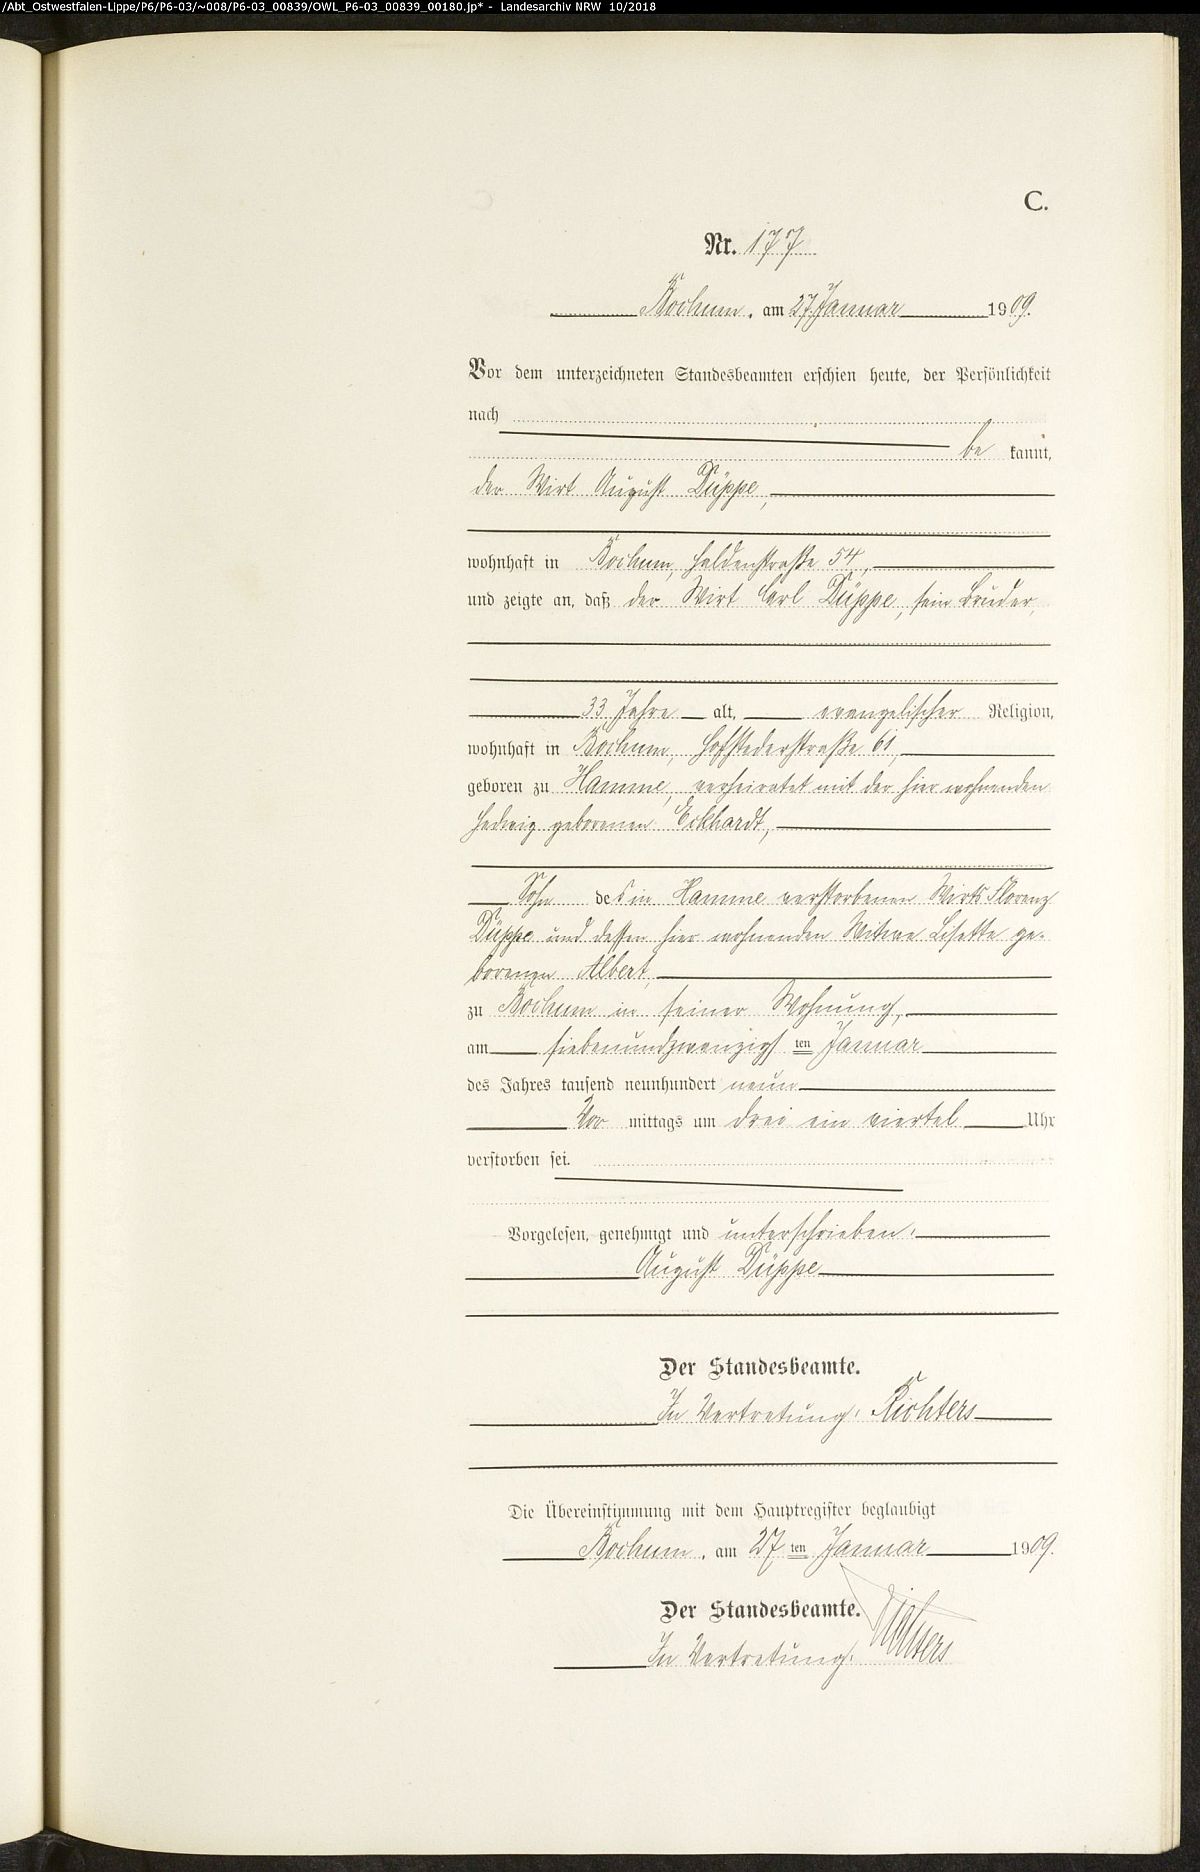 /Abt_Ostwestfalen-Lippe/P6/P6-03/~008/P6-03_00839/OWL_P6-03_00839_00180.jp* - Landesarchiv NRW 10/2018
C.
Nr. 177
Bochum, am 27. Januar 1909.
Vor dem unterzeichneten Standesbeamten erschien heute, der Persönlichkeit
nach
be kannt,
der Wirt August Düppe,
wohnhaft in Bochum, Haldenstraße 54,
und zeigte an, daß der Wirt Carl Düppe, sein Bruder,
33 Jahre alt, evangelischer Religion,
wohnhaft in Bochum, Hofstederstraße 61,
geboren zu Hamme, verheiratet mit der hier wohnenden
Hedwig geborenen Eckhardt,
Sohn des in Hamme verstorbenen Wirts Florenz
Düppe und dessen hier wohnenden Witwe Lisette ge-
borenen Albert,
zu Bochum in seiner Wohnung,
am siebenundzwanzigsten Januar
des Jahres tausend neunhundert neun
Vor mittags um drei ein viertel Uhr
verstorben sei.
Vorgelesen, genehmigt und unterschrieben.
August Düppe
Der Standesbeamte.
In Vertretung: Richters
Die Übereinstimmung mit dem Hauptregister beglaubigt
Bochum, am 27ten Januar 1909.
Der Standesbeamte.
In Vertretung: Richters